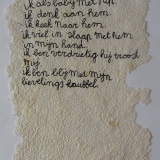 ik als baby met hem.
ik denk aan hem.
ik keek naar hem.
ik viel in slaap met hem
in mijn hand.
ik ben verdrietig hij troost
mij.
ik ben blij met mijn
lievelings knuffel.